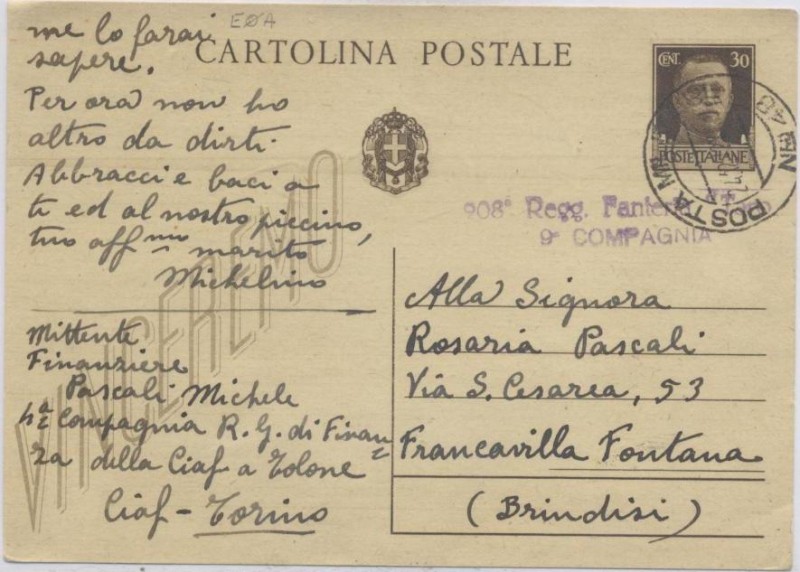 EØA
CARTOLINA POSTALE
CENT. 30
POSTE ITALIANE
POSTA N. 48
908° Regg. Fanteria
9ª COMPAGNIA
VINCEREMO
me lo farai
sapere.
Per ora non ho
altro da dirti.
Abbracci e baci a
te ed al nostro piccino,
tuo aff.mo marito
Michelino
Mittente
Finanziere
Pascali Michele
Compagnia R. G. di Finan=
za della Ciaf a Tolone
Ciaf - Torino
Alla Signora
Rosaria Pascali
Via S. Cesarea, 53
Francavilla Fontana
(Brindisi)